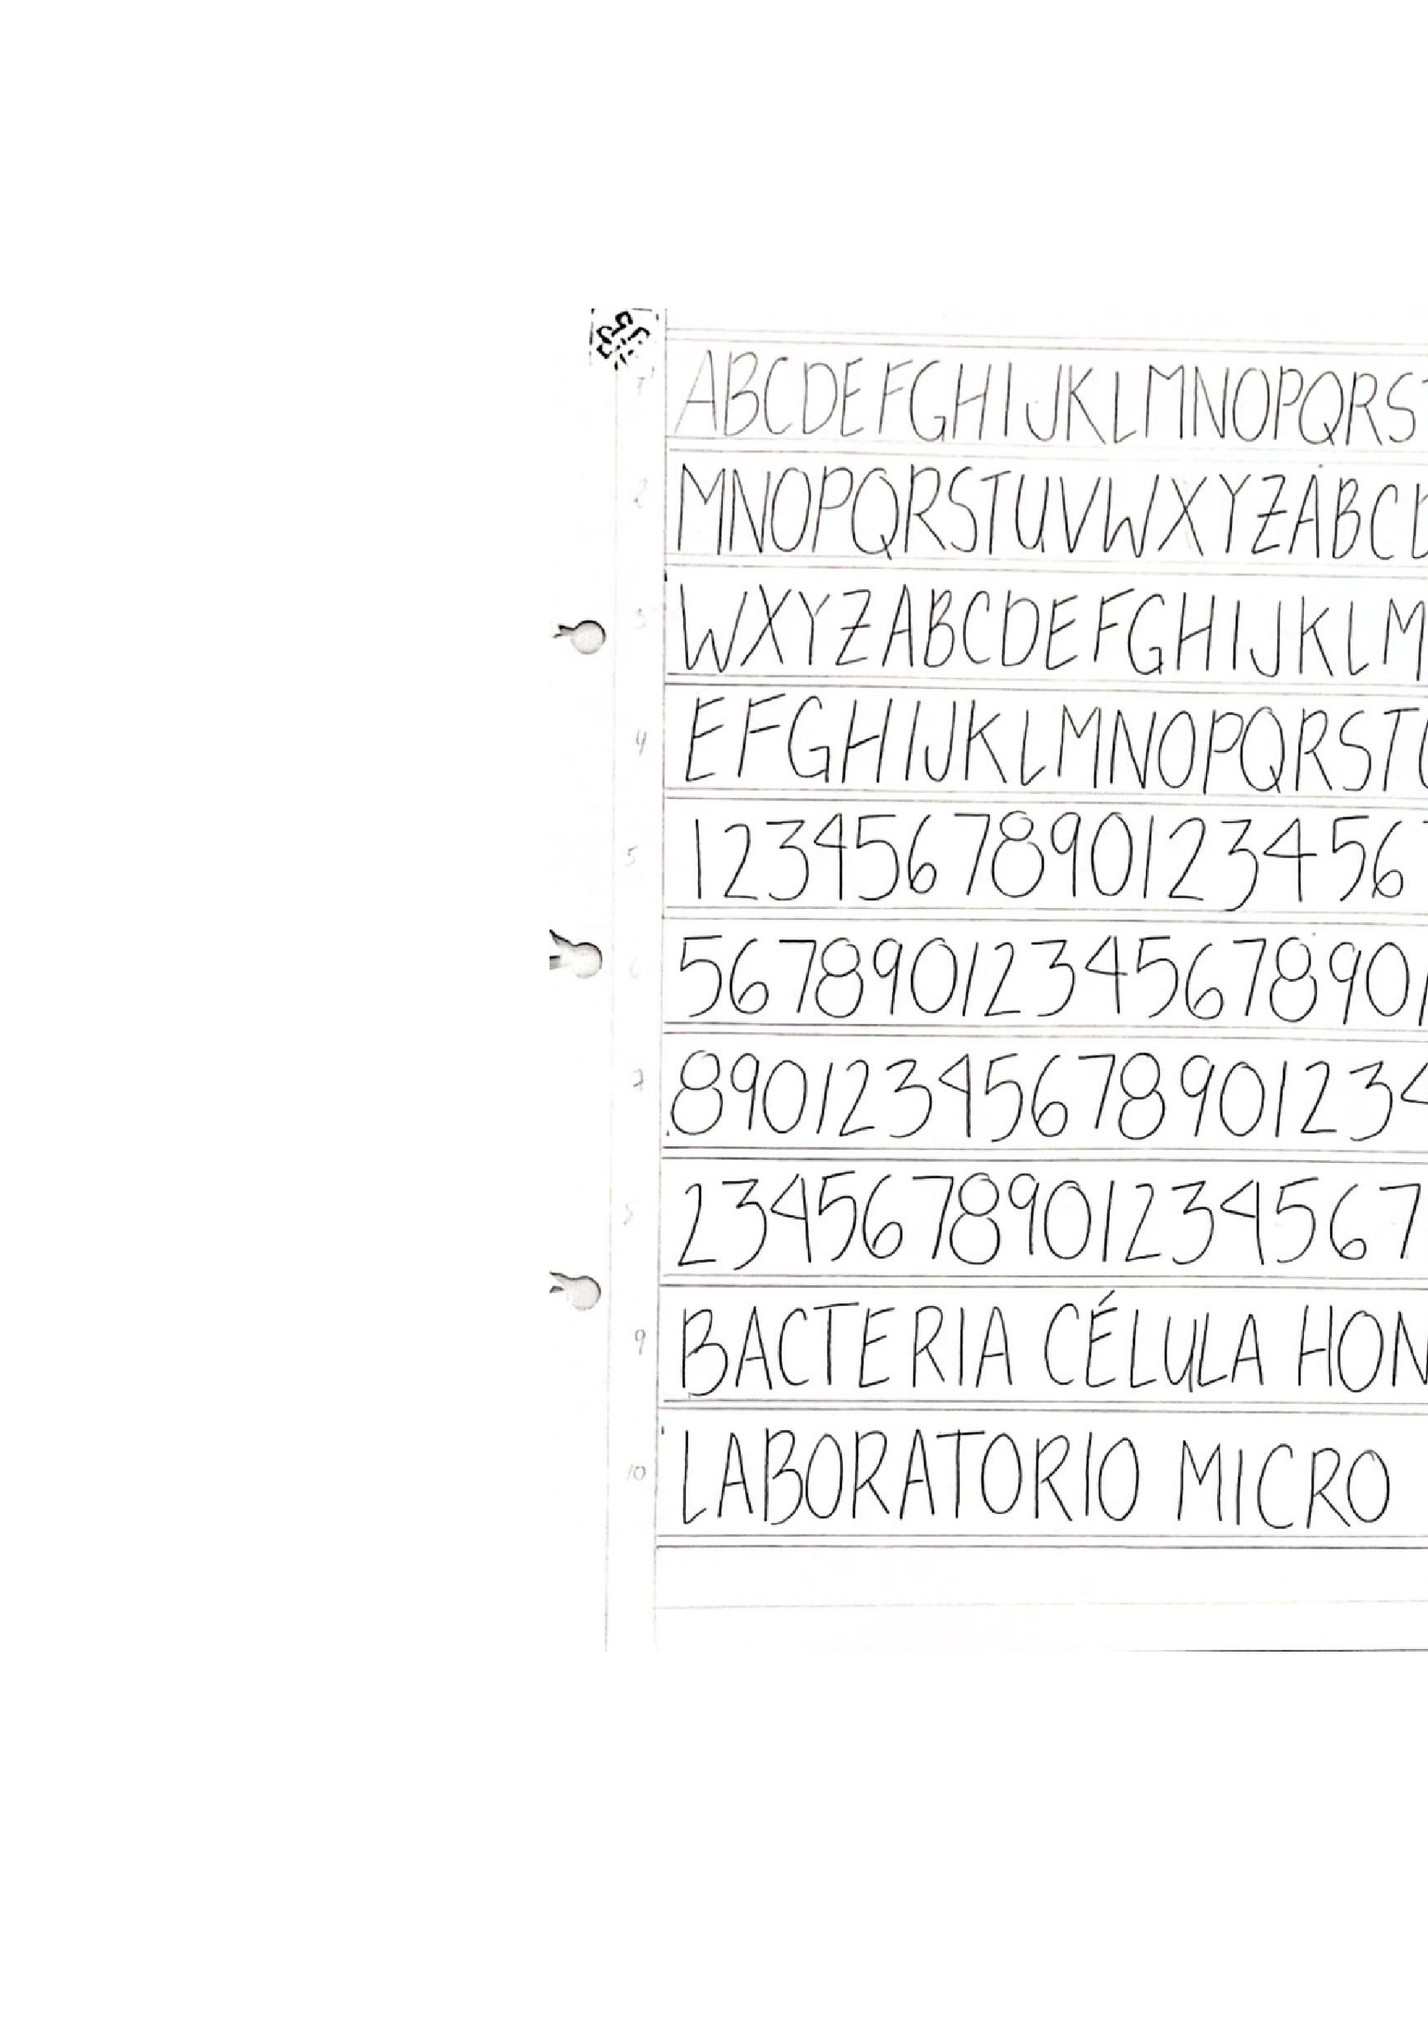 1 ABCDEFGHIJKLMNOPQRS
2 MNOPQRSTUVWXYZABCD
3 WXYZABCDEFGHIJKLM
4 EFGHIJKLMNOPQRST
5 1234567890123456
6 5678901234567890
7 89012345678901234
8 2345678901234567
9 BACTERIA CÉLULA HON
10 LABORATORIO MICRO